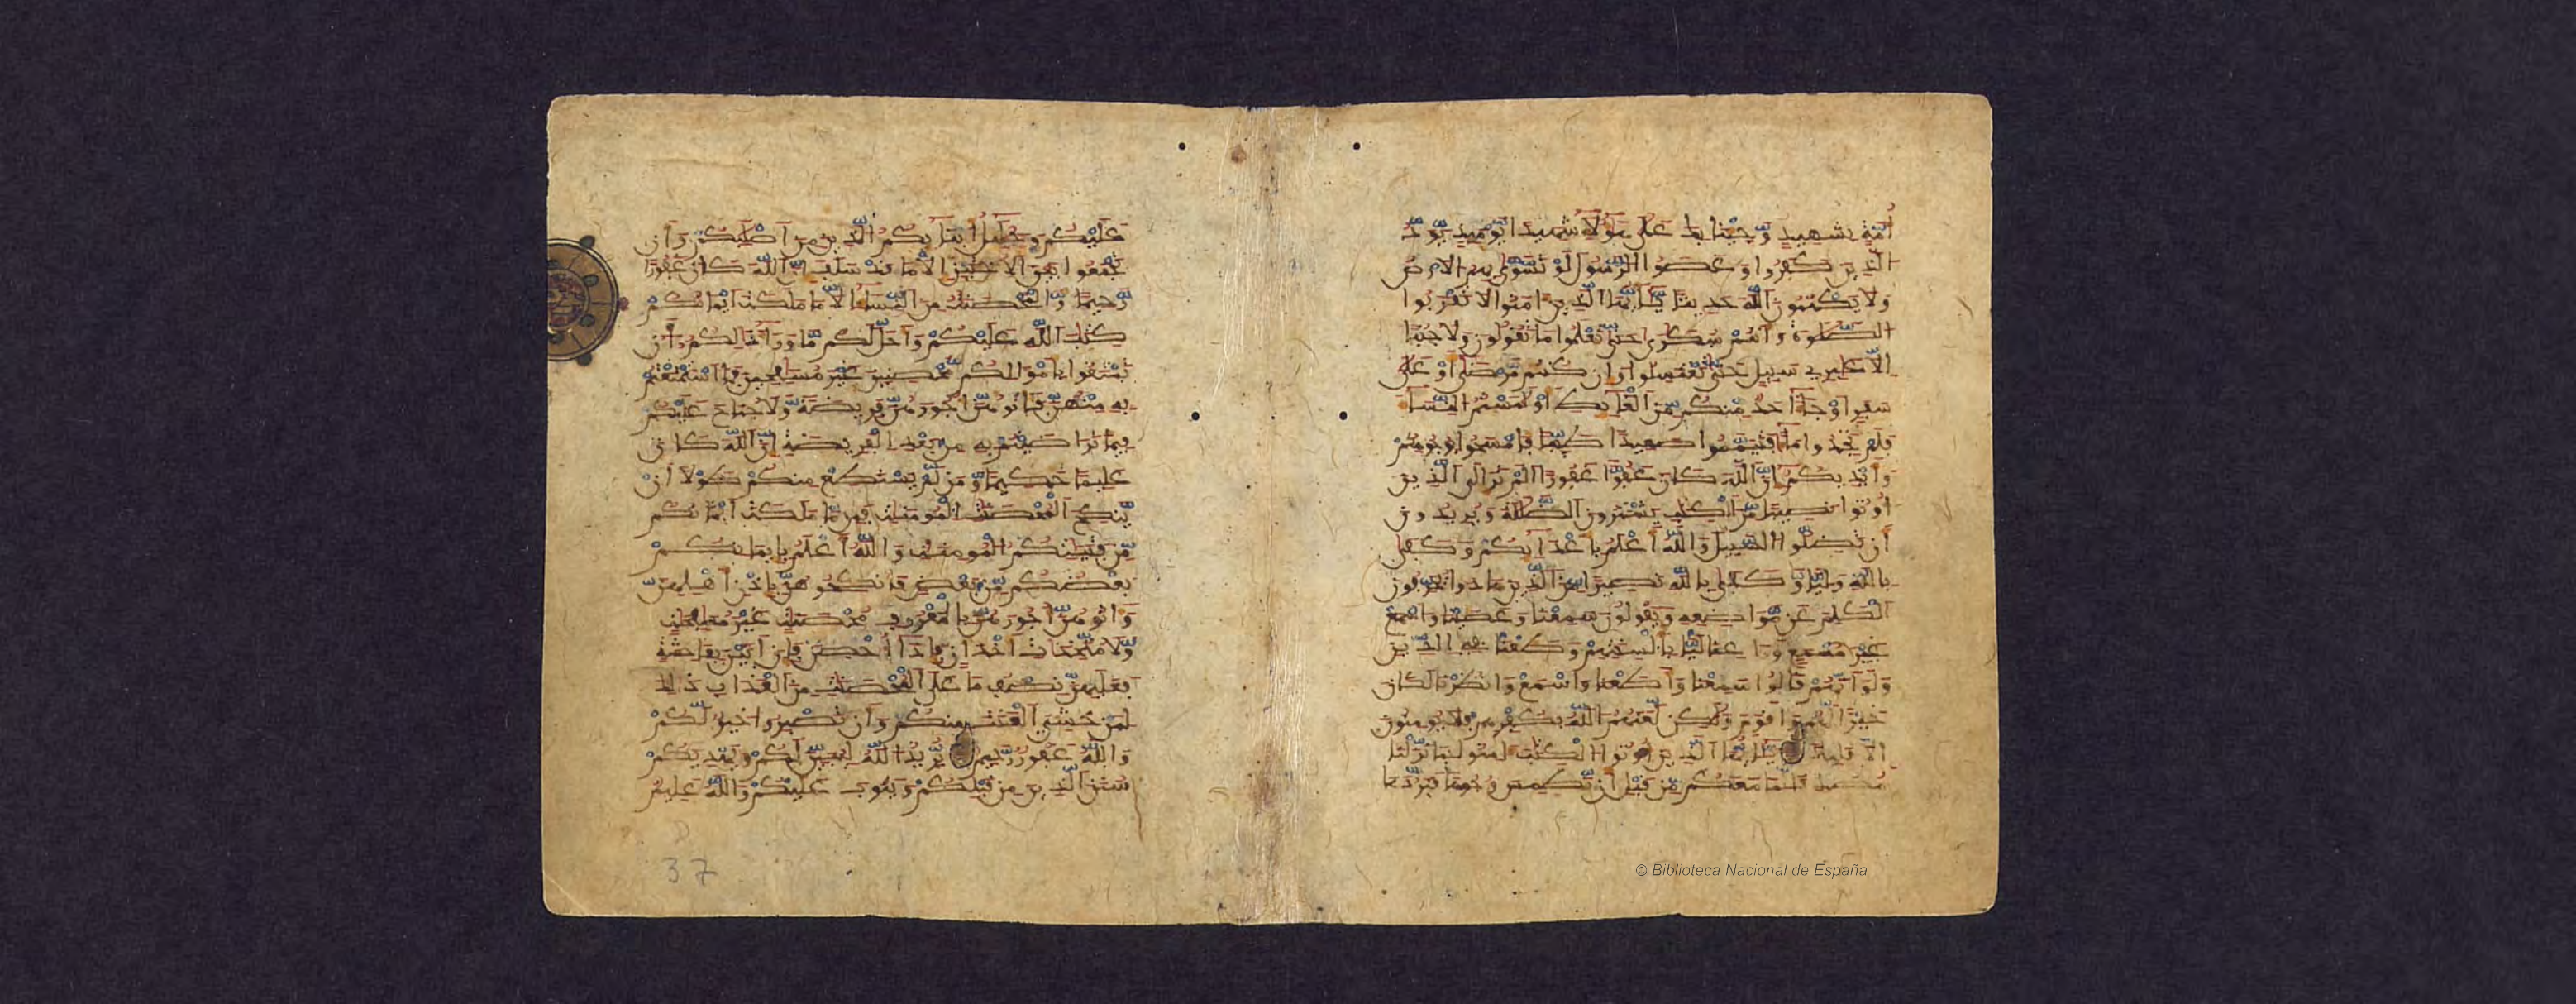 أُمَّةٍ بِشَهِيدٍ وَّجِئْنَا بِكَ عَلَى هَؤُلَاءِ شَهِيدًا يَوْمَئِذٍ يَوَدُّ
الَّذِينَ كَفَرُوا وَعَصَوُا الرَّسُولَ لَوْ تَسَّوَّى بِهِمُ الَارْضُ
وَلَا يَكْتُمُونَ اللَّهَ حَدِيثًا يَأَيُّهَا الَّذِينَ امَنُوا لَا تَقْرَبُوا
الصَّلَوٰةَ وَأَنتُمْ سُكَرَى حَتَّى تَعْلَمُوا مَا تَقُولُونَ وَلَا جُنُبًا
الَّا عَابِرِي سَبِيلٍ حَتَّى تَغْتَسِلُوا وَإِن كُنتُم مَّرْضَى أَوْ عَلَى
سَفَرٍ أَوْ جَاءَ احَدٌ مِّنكُم مِّنَ الْغَائِطِ أَوْ لَمَسْتُمُ النِّسَاءَ
فَلَمْ تَجِدُوا مَاءً فَتَيَمَّمُوا صَعِيدًا طَيِّبًا فَامْسَحُوا بِوُجُوهِكُمْ
وَأَيْدِيكُمْ إِنَّ اللَّهَ كَانَ عَفُوًّا غَفُورًا الَمْ تَرَ إِلَى الَّذِينَ
أُوتُوا نَصِيبًا مِّنَ الْكِتَبِ يَشْتَرُونَ الضَّلَلَةَ وَيُرِيدُونَ
أَن تَضِلُّوا السَّبِيلَ وَاللَّهُ أَعْلَمُ بِأَعْدَائِكُمْ وَكَفَى
بِاللَّهِ وَلِيًّا وَّكَفَى بِاللَّهِ نَصِيرًا مِّنَ الَّذِينَ هَادُوا يُحَرِّفُونَ
الْكَلِمَ عَن مَّوَاضِعِهِ وَيَقُولُونَ سَمِعْنَا وَعَصَيْنَا وَاسْمَعْ
غَيْرَ مُسْمَعٍ وَرَاعِنَا لَيًّا بِأَلْسِنَتِهِمْ وَطَعْنًا فِي الدِّينِ
وَلَوَ أَنَّهُمْ قَالُوا سَمِعْنَا وَأَطَعْنَا وَاسْمَعْ وَانظُرْنَا لَكَانَ
خَيْرًا لَّهُمْ وَأَقْوَمَ وَلَكِن لَّعَنَهُمُ اللَّهُ بِكُفْرِهِمْ فَلَا يُومِنُونَ
إِلَّا قَلِيلًا يَأَيُّهَا الَّذِينَ أُوتُوا الْكِتَبَ امِنُوا بِمَا نَزَّلْنَا
مُصَدِّقًا لِّمَا مَعَكُم مِّن قَبْلِ أَن نَّطْمِسَ وُجُوهًا فَنَرُدَّهَا
عَلَيْكُمْ وَحَلَئِلُ أَبْنَائِكُمُ الَّذِينَ مِنَ اصْلَبِكُمْ وَأَن
تَجْمَعُوا بَيْنَ الُاخْتَيْنِ إِلَّا مَا قَدْ سَلَفَ إِنَّ اللَّهَ كَانَ غَفُورًا
رَّحِيمًا وَّالْمُحْصَنَتُ مِنَ النِّسَاءِ الَّا مَا مَلَكَتَ ايْمَانُكُمْ
كِتَبَ اللَّهِ عَلَيْكُمْ وَأَحَلَّ لَكُم مَّا وَرَاءَ ذَلِكُمُ أَن
تَبْتَغُوا بِأَمْوَالِكُم مُّحْصِنِينَ غَيْرَ مُسَافِحِينَ فَمَا اسْتَمْتَعْتُم
بِهِ مِنْهُنَّ فَأَتُوهُنَّ أُجُورَهُنَّ فَرِيضَةً وَّلَا جُنَاحَ عَلَيْكُمْ
فِيمَا تَرَاضَيْتُم بِهِ مِن بَعْدِ الْفَرِيضَةِ إِنَّ اللَّهَ كَانَ
عَلِيمًا حَكِيمًا وَّمَن لَّمْ يَسْتَطِعْ مِنكُمْ طَوْلًا أَنْ
يَّنكِحَ الْمُحْصَنَتِ الْمُومِنَتِ فَمِن مَّا مَلَكَتَ ايْمَانُكُم
مِّن فَتَيَتِكُمُ الْمُومِنَتِ وَاللَّهُ أَعْلَمُ بِإِيمَانِكُمْ
بَعْضُكُم مِّن بَعْضٍ فَانكِحُوهُنَّ بِإِذْنِ أَهْلِهِنَّ
وَأَتُوهُنَّ أُجُورَهُنَّ بِالْمَعْرُوفِ مُحْصَنَتٍ غَيْرَ مُسَافِحَتٍ
وَّلَا مُتَّخِذَاتِ أَخْدَانٍ فَإِذَا أُحْصِنَّ فَإِنَ اتَيْنَ بِفَاحِشَةٍ
فَعَلَيْهِنَّ نِصْفُ مَا عَلَى الْمُحْصَنَتِ مِنَ الْعَذَابِ ذَلِكَ
لِمَنْ خَشِيَ الْعَنَتَ مِنكُمْ وَأَن تَصْبِرُوا خَيْرٌ لَّكُمْ
وَاللَّهُ غَفُورٌ رَّحِيمٌ يُرِيدُ اللَّهُ لِيُبَيِّنَ لَكُمْ وَيَهْدِيَكُمْ
سُنَنَ الَّذِينَ مِن قَبْلِكُمْ وَيَتُوبَ عَلَيْكُمْ وَاللَّهُ عَلِيمٌ
37
© Biblioteca Nacional de España